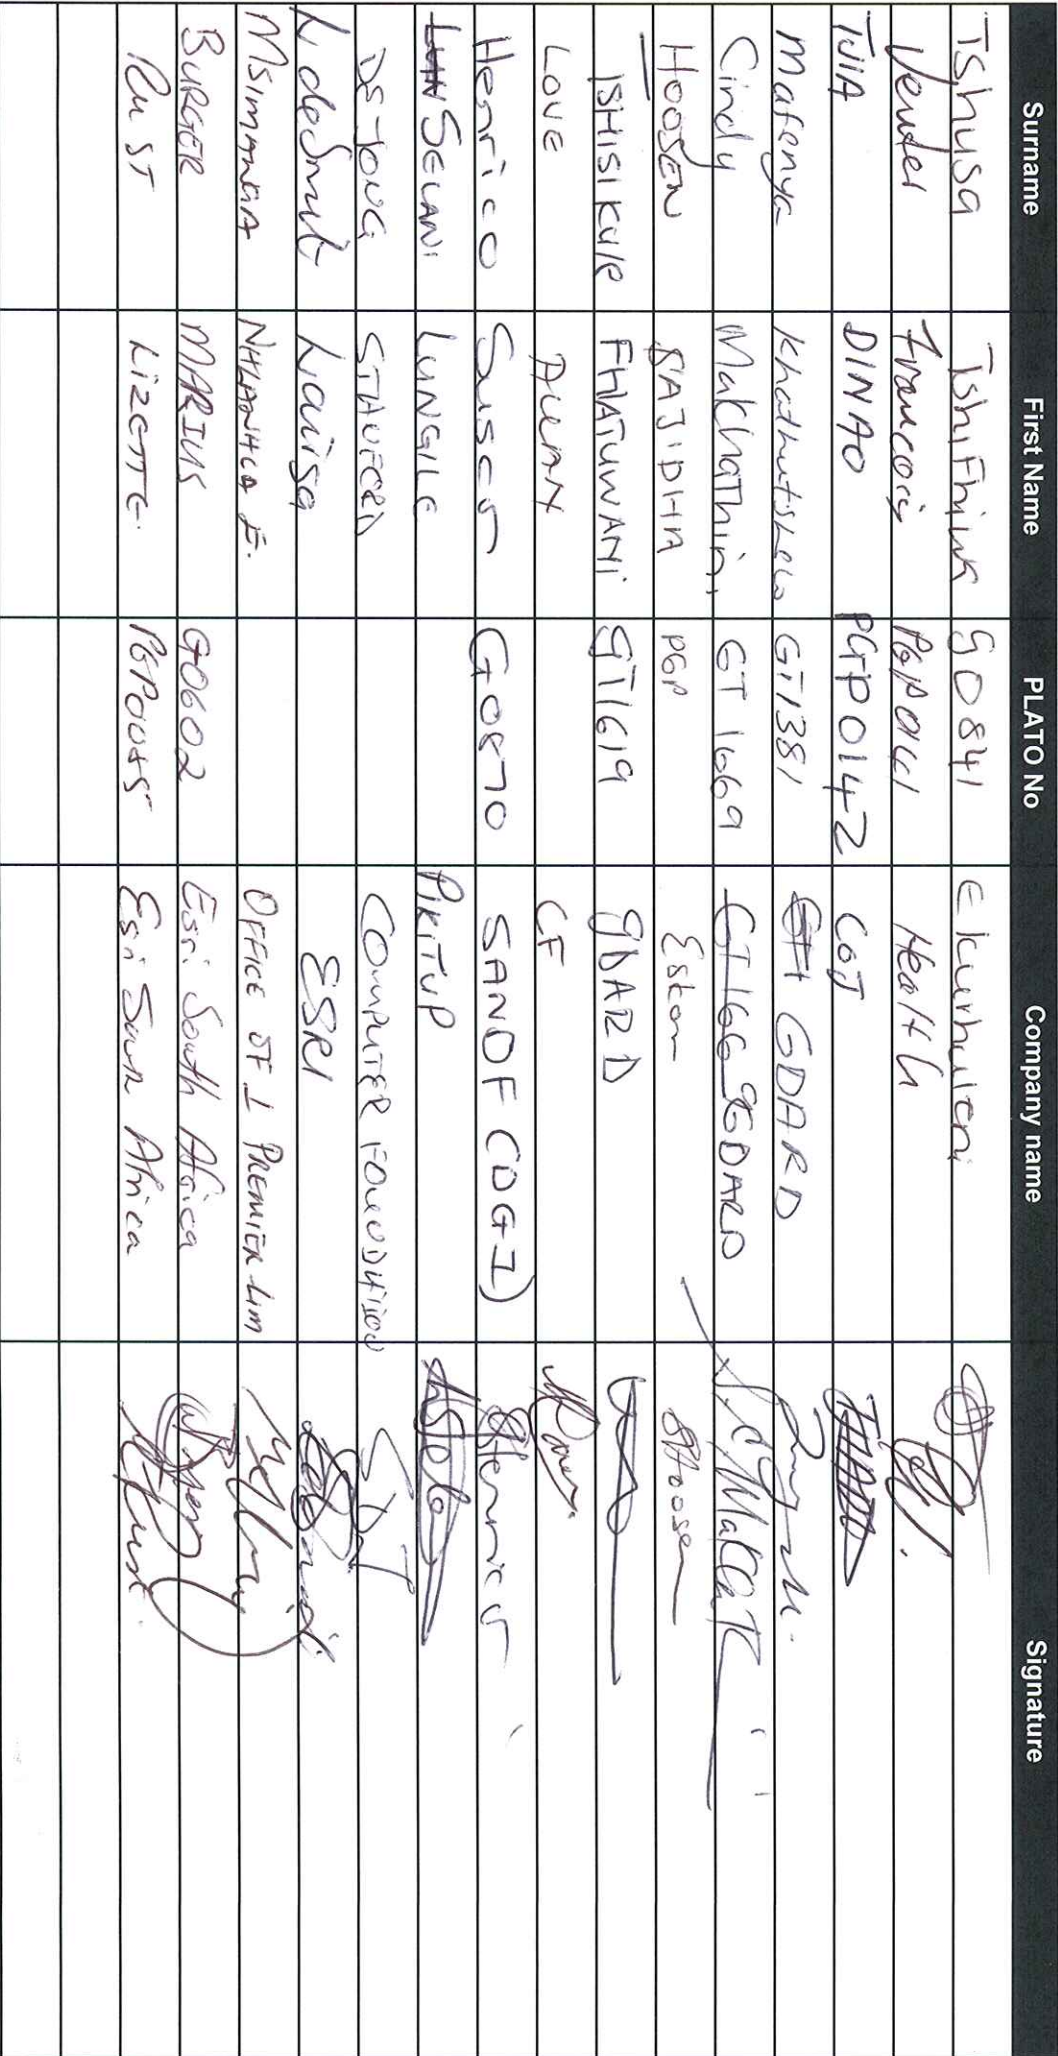 Surname First Name PLATO No Company name Signature
Tshusa g0841 Ekurhuleni
Venter Francois Health
TJIA DINAO PGP0142 COJ
Mafenya GT1381 GDARD
Cindy Makhathini GT1669 GT1669 GDARD
HOOSEN SAJIDHA PGP Eskom SHoosen
FHATUWANI gT1619 gDARD
LOVE CF
Henrico G0870 SANDF (DGI) SHenrico
SELANI LUNGILE PIKITUP
DE JONG COMPUTER FOUNDATION
L deSmit Louisa ESRI
MSIMANGA NHLANHLA E. OFFICE OF PREMIER Lim
BURGER MARIUS G0602 Esri South Africa
RUST LIZETTE. Esri South Africa